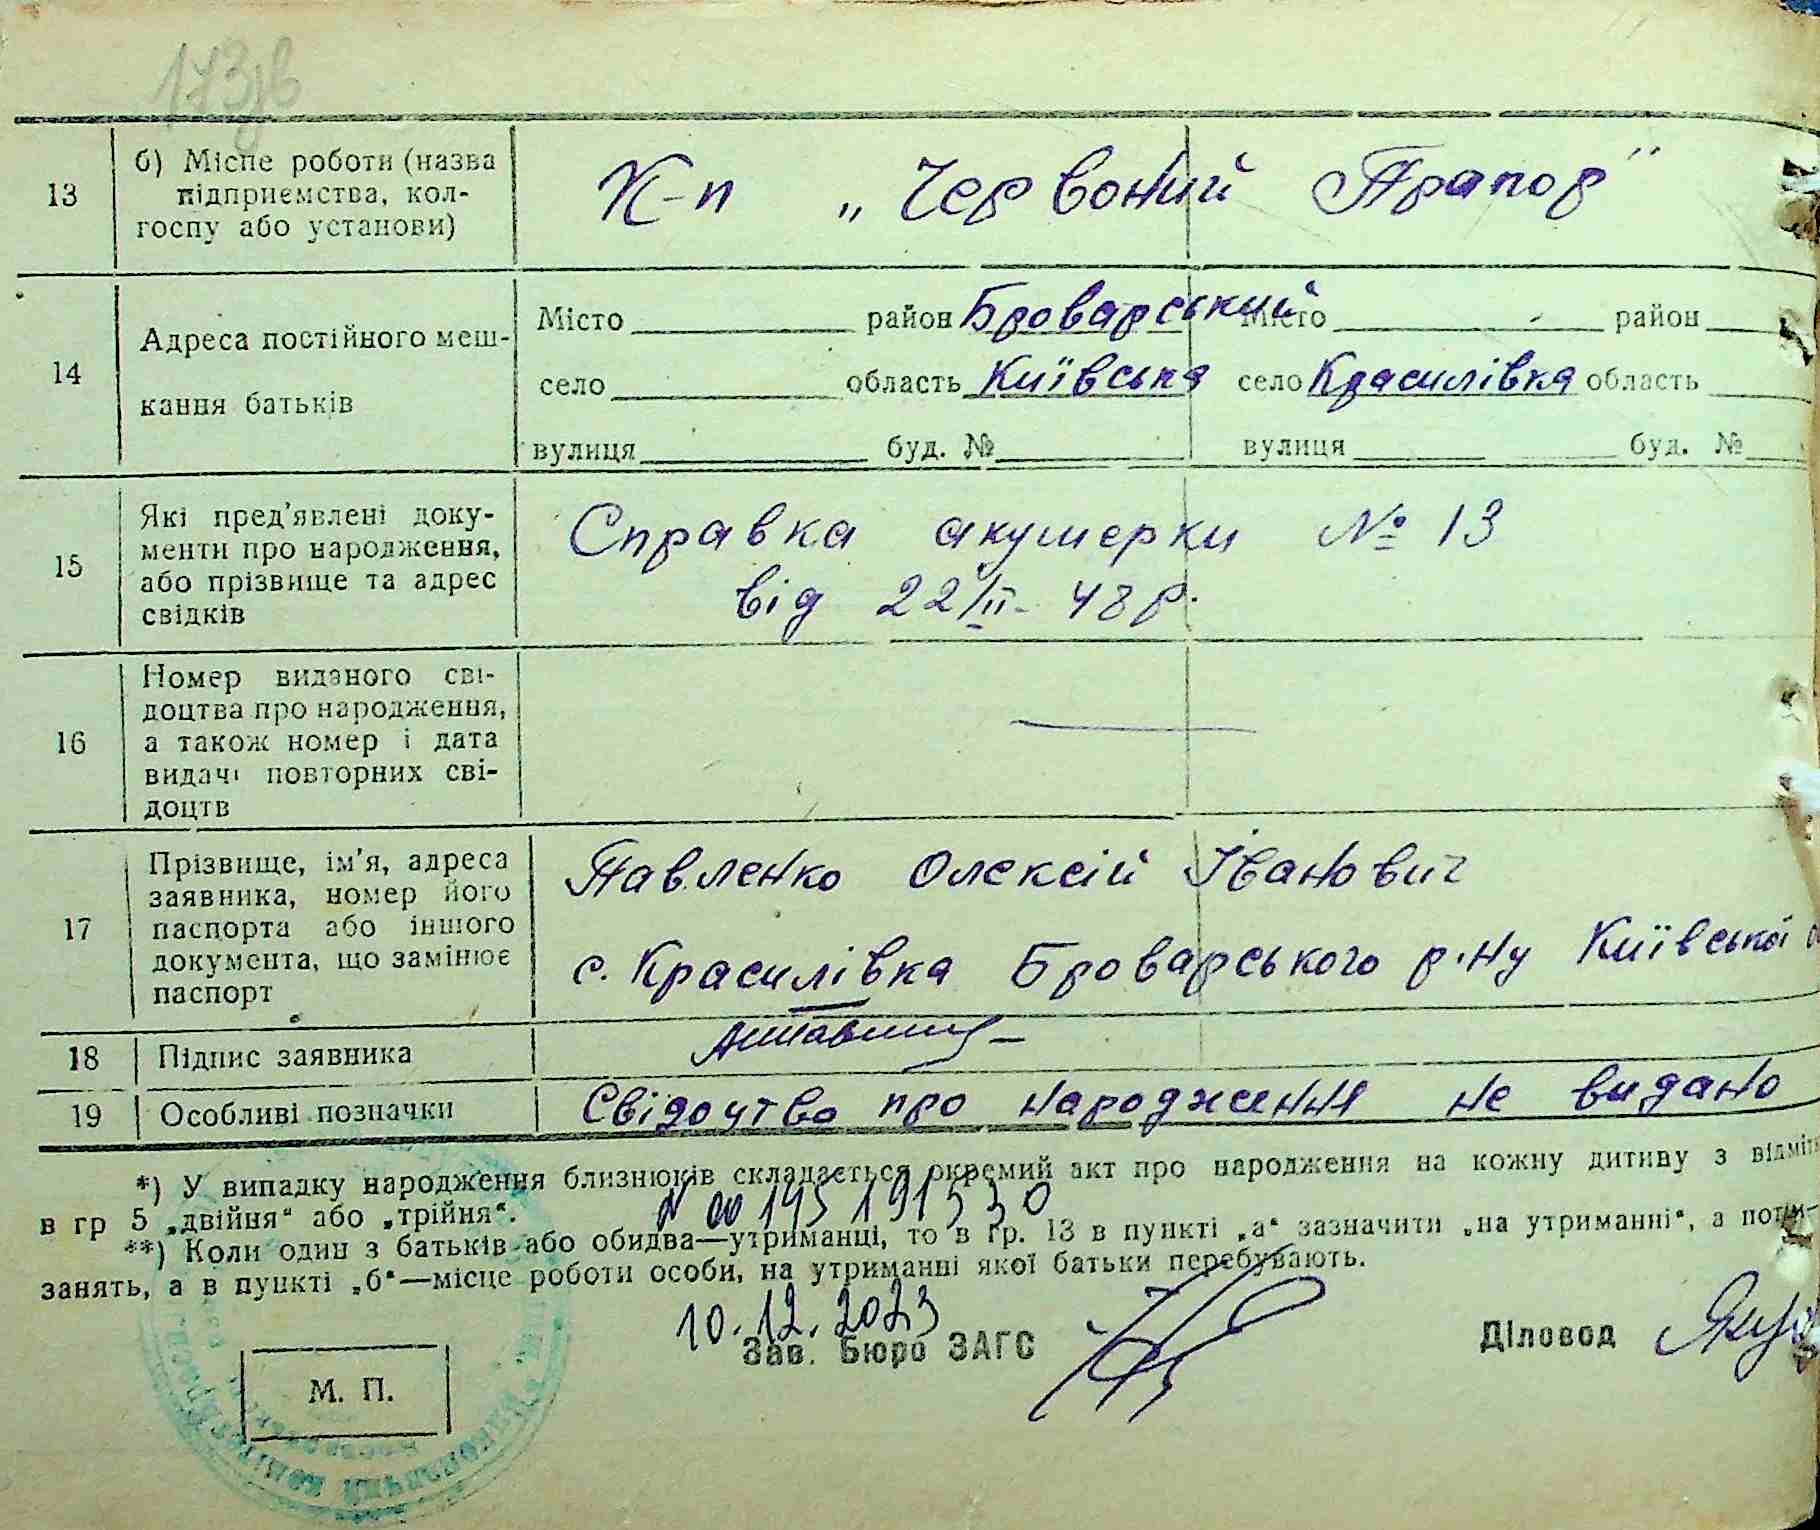 173зв
13 б) Місце роботи (назва
підприємства, кол-
госпу або установи)
К-п „Червоний Прапор"
14 Адреса постійного меш-
кання батьків
Місто район Броварський Місто район
село область Київська село Красилівка область
вулиця буд. № вулиця буд. №
15 Які пред'явлені доку-
менти про народження,
або прізвище та адрес
свідків
Справка акушерки № 13
від 22/II- 48 р.
16 Номер виданого сві-
доцтва про народження,
а також номер і дата
видачі повторних сві-
доцтв
—
17 Прізвище, ім'я, адреса
заявника, номер його
паспорта або іншого
документа, що замінює
паспорт
Павленко Олексій Іванович
с. Красилівка Броварського р-ну Київської
18 Підпис заявника
19 Особливі позначки Свідоцтво про народження не видано
*) У випадку народження близнюків складається окремий акт про народження на кожну дитину з відміт
в гр 5 „двійня“ або „трійня“.
N 00195191530
**) Коли один з батьків або обидва—утриманці, то в гр. 13 в пункті „а“ зазначити „на утриманні“, а
занять, а в пункті „б“—місце роботи особи, на утриманні якої батьки перебувають.
10.12.2023
Зав. Бюро ЗАГС Діловод
М. П.